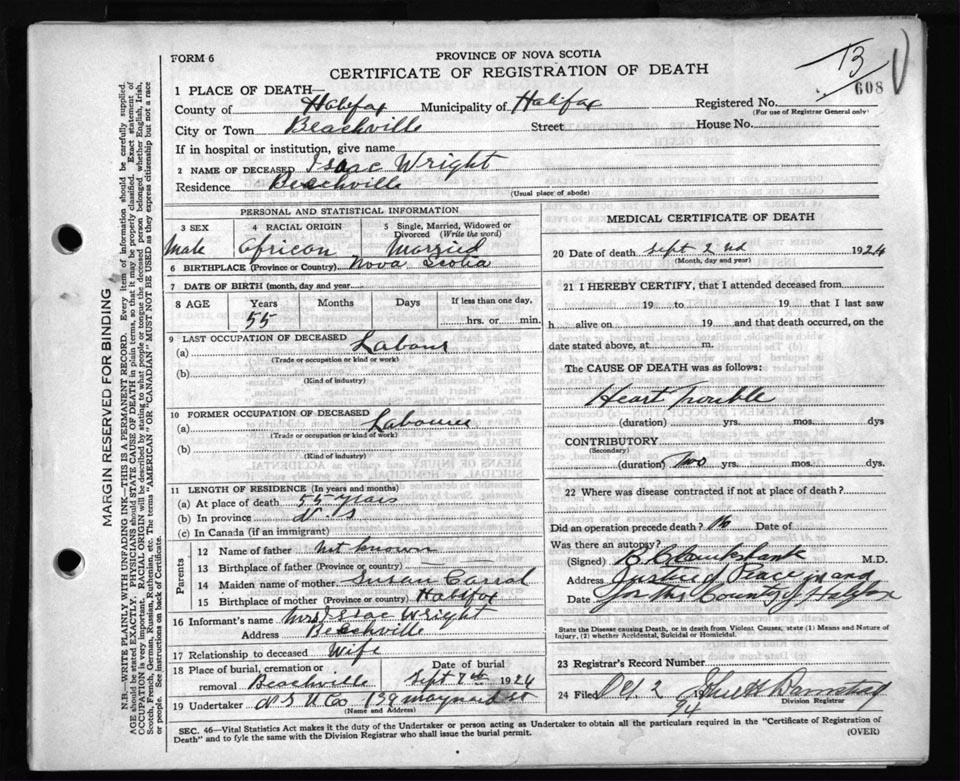 FORM 6
PROVINCE OF NOVA SCOTIA
CERTIFICATE OF REGISTRATION OF DEATH
13
608
1 PLACE OF DEATH—
County of Halifax Municipality of Halifax Registered No.
(For use of Registrar General only)
City or Town Beachville Street House No.
If in hospital or institution, give name
2 NAME OF DECEASED Isaac Wright
Residence Beechville
(Usual place of abode)
PERSONAL AND STATISTICAL INFORMATION
3 SEX 4 RACIAL ORIGIN 5 Single, Married, Widowed or Divorced (Write the word)
Male African Married
6 BIRTHPLACE (Province or Country) Nova Scotia
7 DATE OF BIRTH (month, day and year)
8 AGE Years Months Days If less than one day,
55 hrs. or min.
9 LAST OCCUPATION OF DECEASED Labour
(a)
(Trade or occupation or kind or work)
(b)
(Kind of industry)
10 FORMER OCCUPATION OF DECEASED Labourer
(a)
(Trade or occupation or kind of work)
(b)
(Kind of industry)
11 LENGTH OF RESIDENCE (In years and months)
(a) At place of death 55 years
(b) In province N S
(c) In Canada (if an immigrant)
Parents
12 Name of father Not known
13 Birthplace of father (Province or Country)
14 Maiden name of mother Susan Carral
15 Birthplace of mother (Province or country) Halifax
16 Informant's name Mrs Isaac Wright
Address Beechville
17 Relationship to deceased Wife
18 Place of burial, cremation or removal Beachville Date of burial Sept 7th 1924
19 Undertaker N S U Co 139 Maynard St
(Name and Address)
MEDICAL CERTIFICATE OF DEATH
20 Date of death Sept 2nd 1924
(Month, day and year)
21 I HEREBY CERTIFY, that I attended deceased from
19 to 19 that I last saw
h alive on 19 and that death occurred, on the
date stated above, at m.
The CAUSE OF DEATH was as follows:
Heart Trouble
(duration) yrs. mos. dys
CONTRIBUTORY
(Secondary)
(duration) Two yrs. mos. dys.
22 Where was disease contracted if not at place of death?
Did an operation precede death? No Date of
Was there an autopsy?
(Signed) M.D.
Address Justice of Peace in and
Date for the County of Halifax
State the Disease causing Death, or in death from Violent Causes, state (1) Means and Nature of
Injury, (2) whether Accidental, Suicidal or Homicidal.
23 Registrar's Record Number
24 Filed 2 19
Division Registrar
SEC. 46—Vital Statistics Act makes it the duty of the Undertaker or person acting as Undertaker to obtain all the particulars required in the "Certificate of Registration of
Death" and to fyle the same with the Division Registrar who shall issue the burial permit.
(OVER)
MARGIN RESERVED FOR BINDING
N.B.—WRITE PLAINLY WITH UNFADING INK—THIS IS A PERMANENT RECORD. Every item of information should be carefully supplied.
AGE should be stated EXACTLY. PHYSICIANS should STATE CAUSE OF DEATH in plain terms, so that it may be properly classified. Exact statement of
OCCUPATION is very important. RACIAL ORIGIN will be described by stating to what people or tongue the deceased person belonged whether English, Irish,
Scotch, French, German, Russian, Ruthenian, etc. The terms "AMERICAN" OR "CANADIAN" MUST NOT BE USED as they express citizenship but not a race
or people. See instructions on back of Certificate.